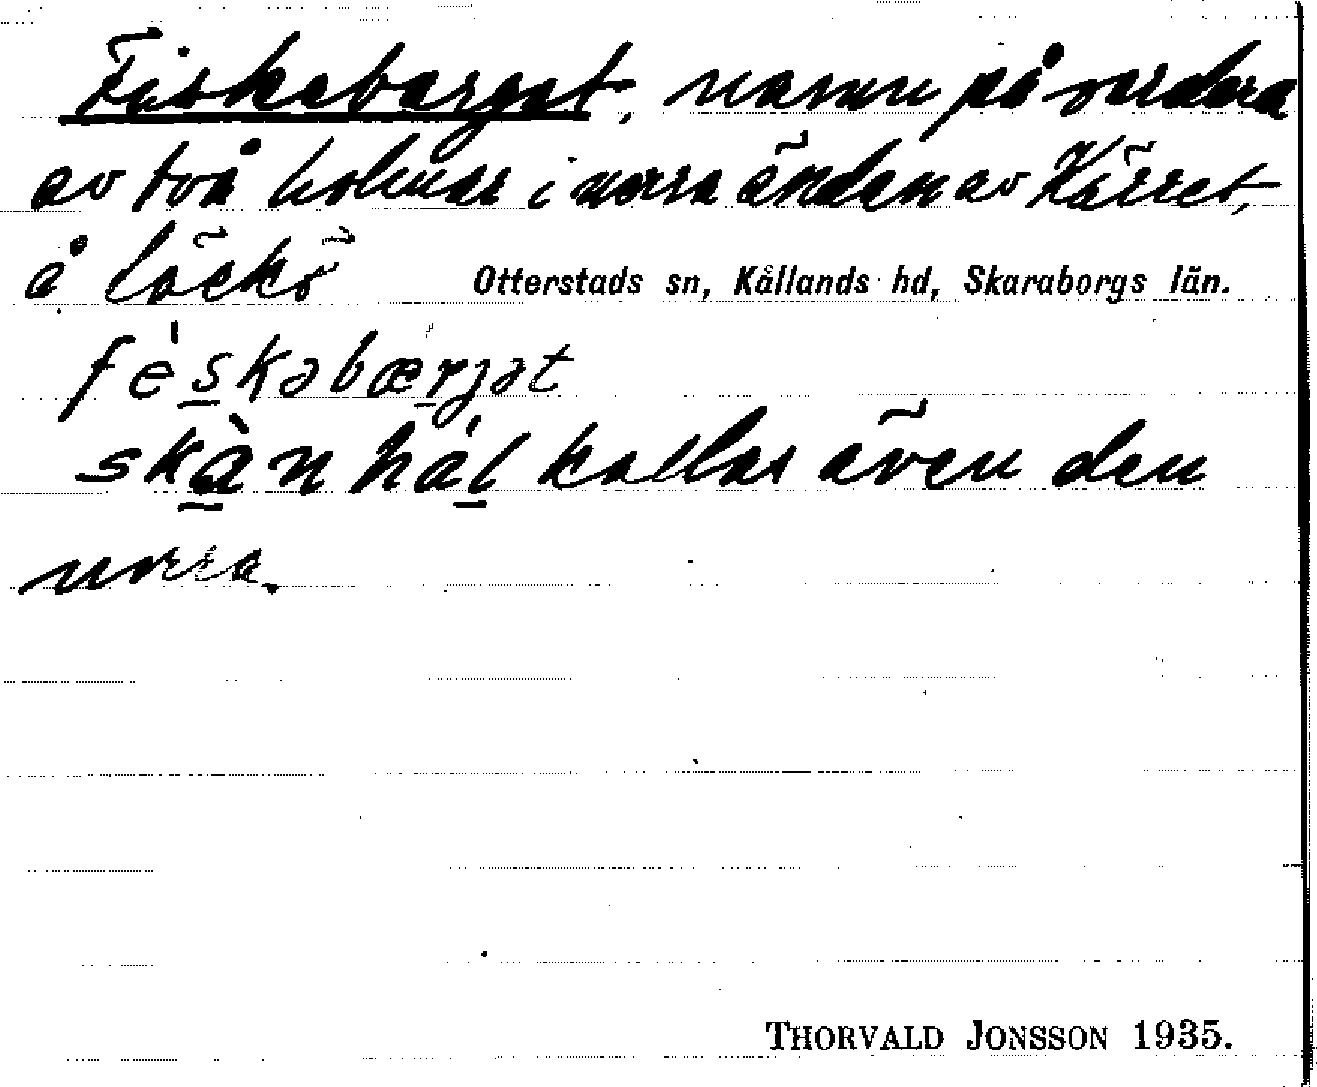 Fiskebarget, namn på vardera
av två holmar i norra änden av Kärret,
å Läckö Otterstads sn, Kållands hd, Skaraborgs län.
fèskəbærjət
skàn hál kallas även den
norra.
THORVALD JONSSON 1935.